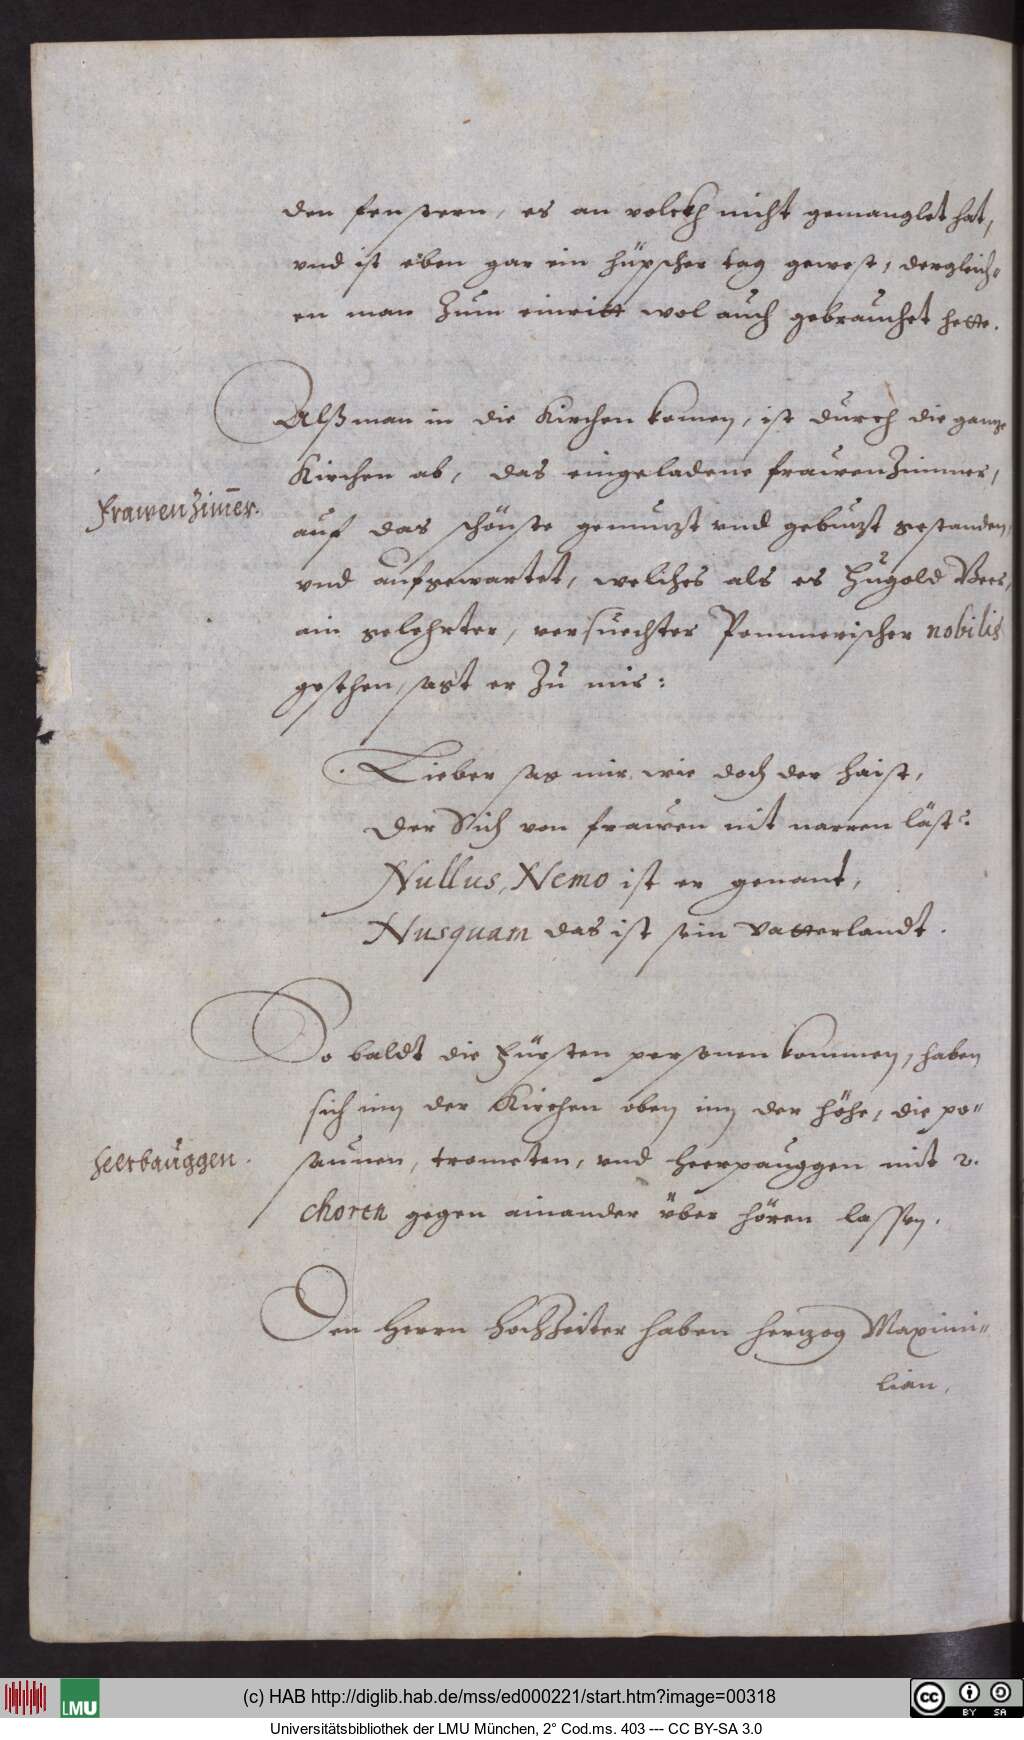 den fenstern, es an volckh nicht gemanglet hat,
vnd ist eben gar ein hüpscher tag gewest, dergleich-
en man zum einritt wol auch gebrauchet hette.
Alß man in die Kirchen komen, ist durch die gantze
Kirchen ab, das eingeladene frawenzimmer,
frawenzim̅er.
auf das schönste gemutzt vnd gebutzt gestanden,
vnd aufgewartet, weliches als es Hugold Bees,
ain gelehrter, versuechter Pommerischer nobilis
gesehen, sagt er zu mir:
Lieber sag mir wie doch der haist,
Der Sich von frawen nit narren läst?
Nullus, Nemo ist er genant,
Nusquam das ist sein vatterlandt.
So baldt die Fürsten personen kommen, haben
sich inn der Kirchen oben inn der höhe, die po-
heerbauggen.
saunen, trometen, vnd heerpauggen mit 2.
choren gegen ainander über hören lassen.
Den Herrn Hochzeiter haben hertzog Maximi-
lian,
(c) HAB http://diglib.hab.de/mss/ed000221/start.htm?image=00318
LMU
cc BY SA
Universitätsbibliothek der LMU München, 2° Cod.ms. 403 --- CC BY-SA 3.0